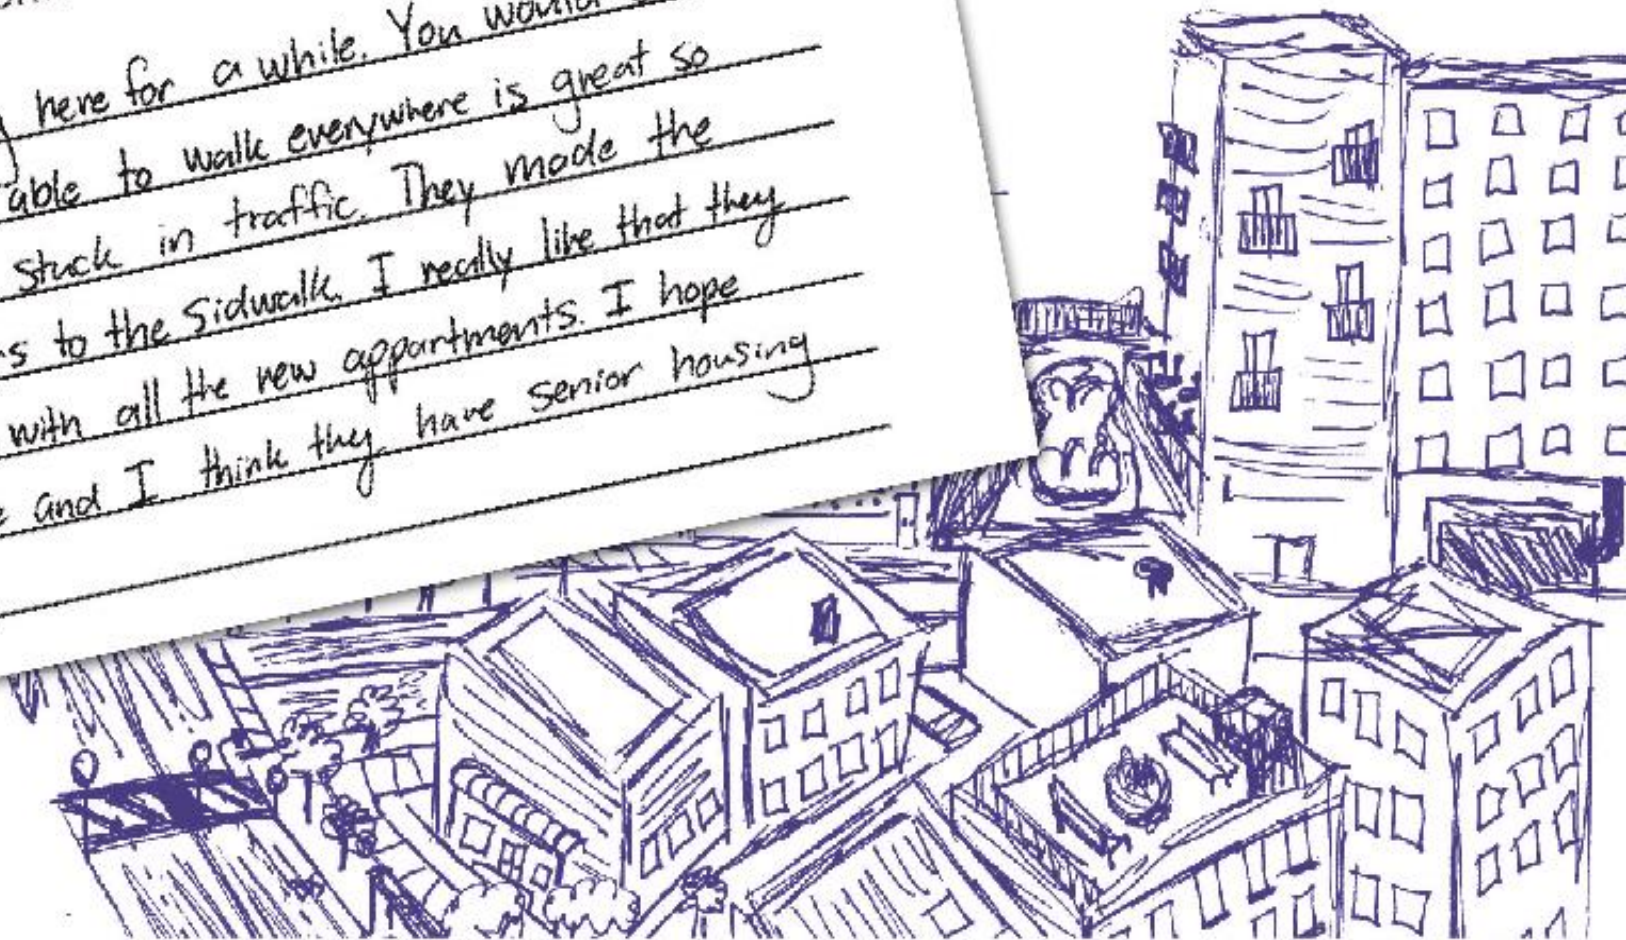 here for a while. You would
able to walk everywhere is great so
stuck in traffic. They made the
to the Sidwalk. I really like that they
with all the new appartments. I hope
and I think they have senior housing